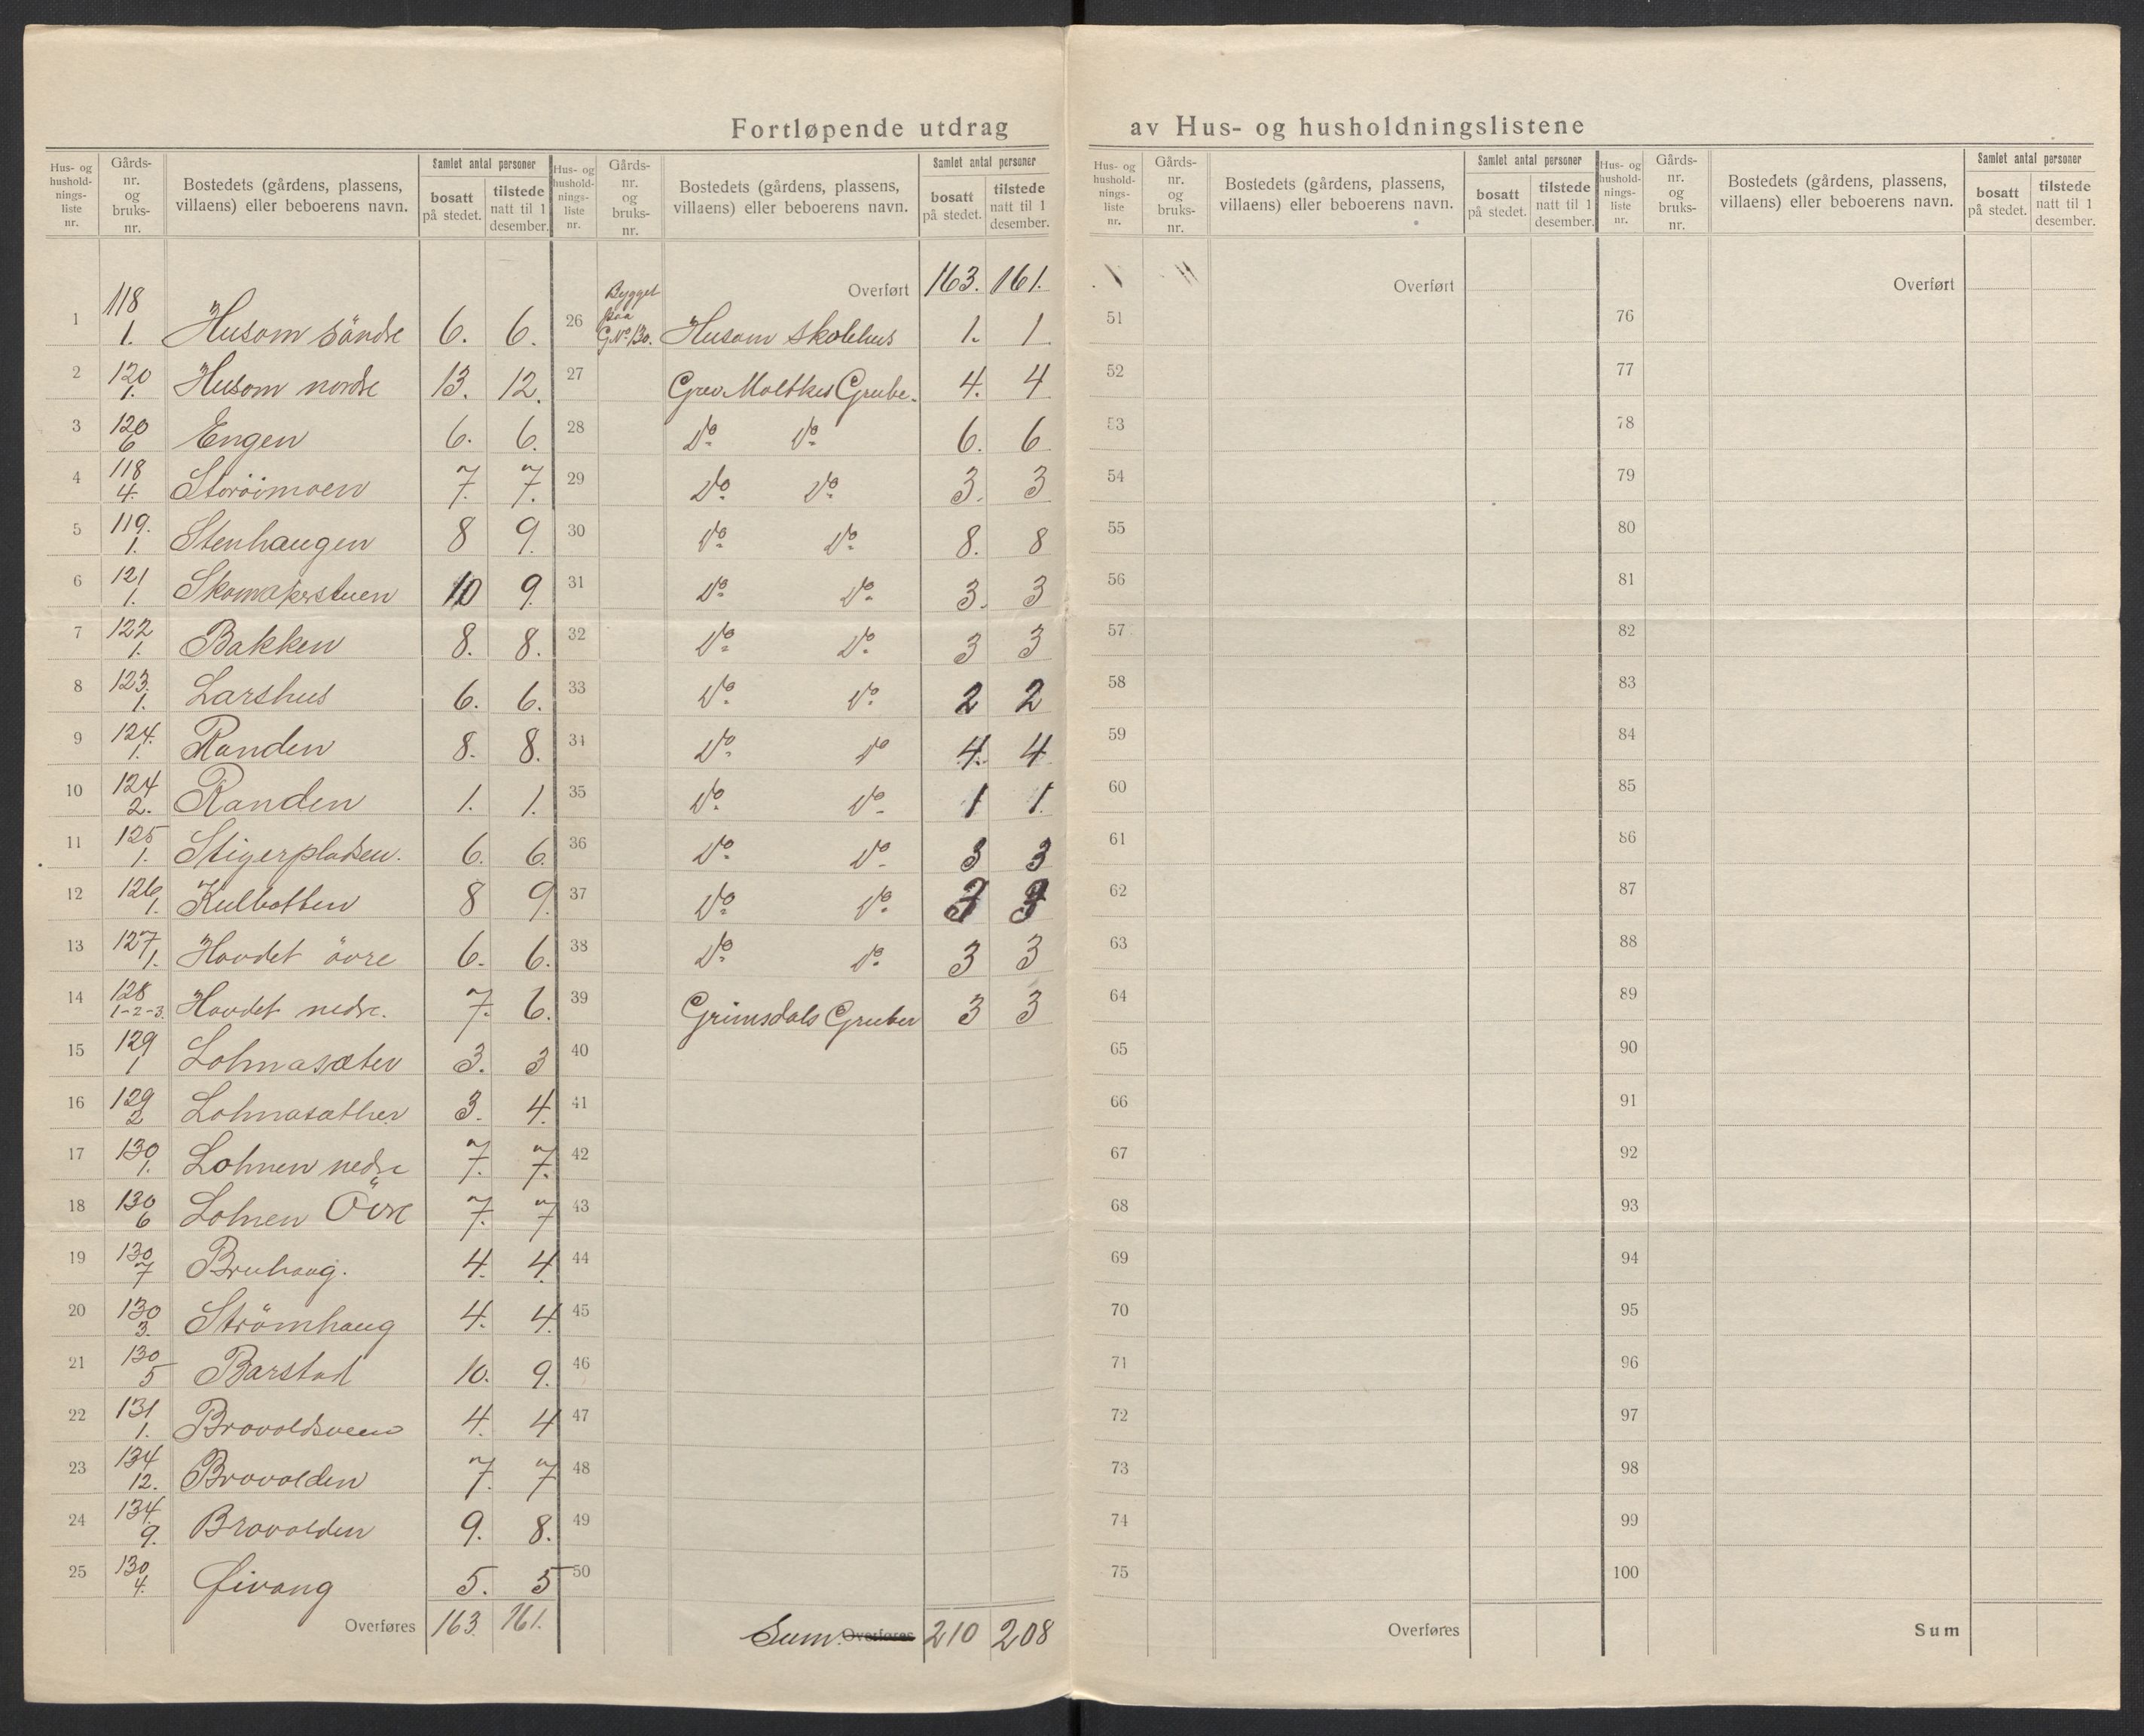 Fortløpende utdrag av Hus- og husholdningslistene
Hus- og husholdnings-liste nr. | Gårds-nr. og bruks-nr. | Bostedets (gårdens, plassens, villaens) eller beboerens navn. | Samlet antal personer | bosatt på stedet. | tilstede natt til 1 desember.
1 118 1. Husom söndre 6. 6.
2 120 1. Husom nordre 13. 12.
3 120 6 Engen 6. 6.
4 118 4. Storöimoen 7. 7.
5 119. 1. Stenhaugen 8 9.
6 121 1. Skomakerstuen 10 9.
7 122 1. Bakken 8. 8.
8 123. 1. Larshus 6. 6.
9 124. 1. Randen 8. 8.
10 124 2. Randen 1. 1.
11 125 1. Stigerpladsen. 6. 6.
12 126 1. Kulbotten 8 9.
13 127 1. Hovdet övre 6. 6.
14 128 1-2-3. Hovdet nedre. 7. 6.
15 129 1 Lohnasæter 3. 3
16 129 2 Lohnasæther 3. 4.
17 130 1. Lohnen nedre 7. 7.
18 130 6 Lohnen Övre 7. 7
19 130 7 Bruhaug. 4. 4.
20 130 3. Strömhaug 4. 4.
21 130 5 Barstad 10. 9.
22 131 1. Brovoldsveen 4. 4
23 134 12. Brovolden 7. 7
24 134. 9. Brovolden 9. 8.
25 130 4. Givang 5. 5
Overføres 163 161.
Hus- og husholdnings-liste nr. | Gårds-nr. og bruks-nr. | Bostedets (gårdens, plassens, villaens) eller beboerens navn. | Samlet antal personer | bosatt på stedet. | tilstede natt til 1 desember.
Overført 163. 161.
26 Bygget paa G.No 130. Husom skolehus 1. 1
27 Grev Moltkes Grube. 4. 4
28 Do Do 6. 6
29 Do Do 3. 3
30 Do Do 8. 8
31 Do Do 3. 3
32 Do Do 3 3
33 Do Do 2 2
34 Do Do 4. 4
35 Do Do 1 1.
36 Do Do 3 3
37 Do Do 3 3
38 Do Do 3 3
39 Grimsdals Gruber 3 3
40
41
42
43
44
45
46
47
48
49
50
Sum. Overføres 210 208
Hus- og husholdnings-liste nr. | Gårds-nr. og bruks-nr. | Bostedets (gårdens, plassens, villaens) eller beboerens navn. | Samlet antal personer | bosatt på stedet. | tilstede natt til 1 desember.
Overført
51
52
53
54
55
56
57
58
59
60
61
62
63
64
65
66
67
68
69
70
71
72
73
74
75
Overføres
Hus- og husholdnings-liste nr. | Gårds-nr. og bruks-nr. | Bostedets (gårdens, plassens, villaens) eller beboerens navn. | Samlet antal personer | bosatt på stedet. | tilstede natt til 1 desember.
Overført
76
77
78
79
80
81
82
83
84
85
86
87
88
89
90
91
92
93
94
95
96
97
98
99
100
Sum